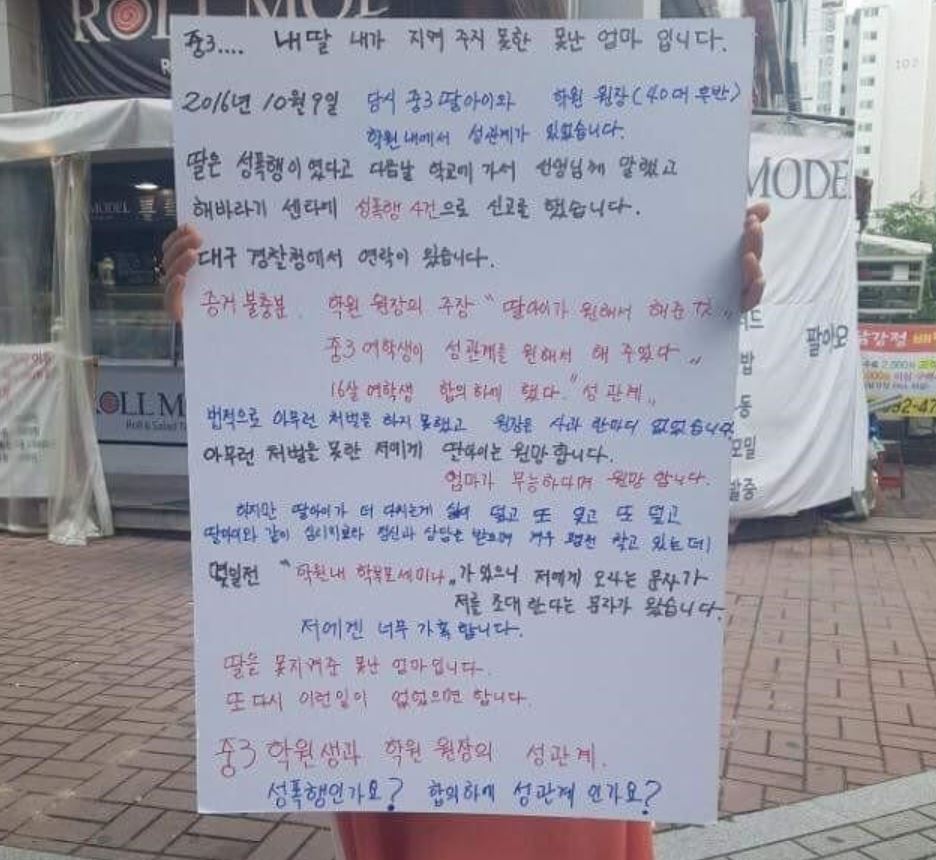 ROLL MODEL
중3.... 내딸 내가 지켜 주지 못한 못난 엄마 입니다.
2016년 10월 9일 당시 중3 딸아이와 학원 원장(40대 후반)
학원 내에서 성관계가 있었습니다.
딸은 성폭행이였다고 다음날 학교에 가서 선생님께 말했고
해바라기 센타에 성폭행 4건으로 신고를 했습니다.
대구 경찰청에서 연락이 왔습니다.
증거 불충분. 학원 원장의 주장 "딸아이가 원해서 해준 것"
중3 여학생이 성관계를 원해서 해 주었다"
16살 여학생 합의하에 했다."성관계"
법적으로 아무런 처벌을 하지 못했고 원장은 사과 한마디 없었습니다
아무런 처벌을 못한 저에게 딸아이는 원망합니다.
엄마가 무능하다며 원망 합니다.
하지만 딸아이가 더 다치는게 싫어 덮고 또 잊고 또 덮고
딸아이와 같이 심리치료와 정신과 상담을 받으며 겨우 평정 찾고 있는데
몇일전 "학원내 학부모세미나"가 있으니 저에게 오라는 문자가
저를 초대 한다는 문자가 왔습니다.
저에겐 너무 가혹 합니다.
딸을 못지켜준 못난 엄마입니다.
또 다시 이런일이 없었으면 합니다.
중3 학원생과 학원 원장의 성관계.
성폭행인가요? 합의하에 성관계 인가요?
MODEL
ROLL M
Roll & Salad
MODE
팔아요
밥
동
모밀
103